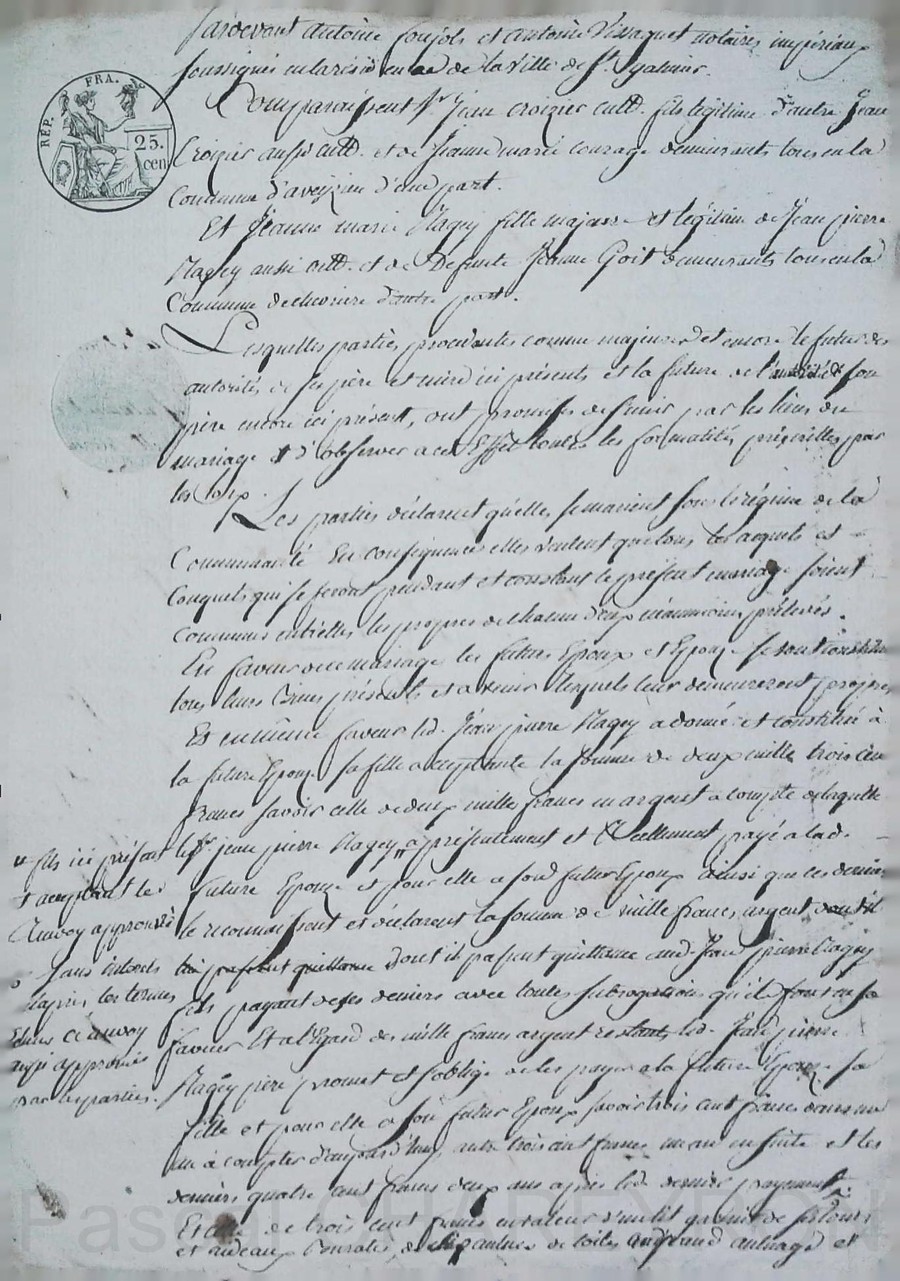 Pardevant antoine Soujols et antoine Vissaguet notaires impériaux
soussignés en la résidence de la Ville de St. galmier.
Comparaissent Sr. Jean Croizier cultr. fils légitime d'autre Jean
Croizier aussi cultr. et de Jeanne marie courage demeurants tous en la
Commune d'aveizieu d'une part.
Et Jeanne marie Nagey fille majeure et légitime de Jean pierre
Nagey aussi cultr. et de Defunte Jeanne Goit demeurants tous en la
Commune de chevriere d'autre part.
Lesquelles parties procédantes comme majeures et encore le futur des
autorités de ses père et mère ici présents et la future de l'autorité de son
père encore ici présent, ont promises de s'unir par les liens du
mariage et d'observer a cet Effet toutes les formalités préscrittes par
les loix.
Les parties déclarent qu'elles se marient sous le régime de la
Communauté En conséquence elles veulent que tous les acquets et
Conquets qui se feront pendant et constant le présent mariage soient
communs entr'elles les propres de chacun d'eux néanmoins prélevés.
En faveur de ce mariage les futurs Epoux et Epouze se sont constitués
tous leurs Biens présents et a venir lesquels leur demeureront propres
Et en même faveur led. Jean pierre Nagey a donné et constitué à
la future Epouze sa fille acceptante la somme de deux mille trois cen
francs savoir celle de deux mille francs en argent a compte de laquelle
le Sr. jean pierre Nagey " a présentement et Réellement payé a lad.
" fils ici présent
et acceptant le
Renvoy approuvé
future Epouze et pour elle a son futur Epoux ainsi que ces derniers
le reconnoissent et déclarent la somme de mille francs argent dont il
passent quittance dont il passent quittance aud. Jean pierre Nagey
° sans interets
après les termes
Echus ce renvoy
aussi approuvé
par les parties.
fils payant de ses deniers avec toutes subrogations qu'ils font en sa
faveur Et a l'Egard des mille francs argent restants led. Jean pierre
Nagey père promet et s'oblige de les payer a la future Epouze sa
fille et pour elle a son futur Epoux savoir trois cent francs dans un
an à compter d'aujourd'huy, autre trois cent francs un an ensuite et les
derniers quatre cent francs deux ans après led. dernier payement °.
Et celle de trois cent francs en valeur d'un lit garni de ses tours
et rideaux Courates, de aulnes de toiles en grand aulnage et
RÉP. FRA.
25.
cen
Pascal CHAREYRON